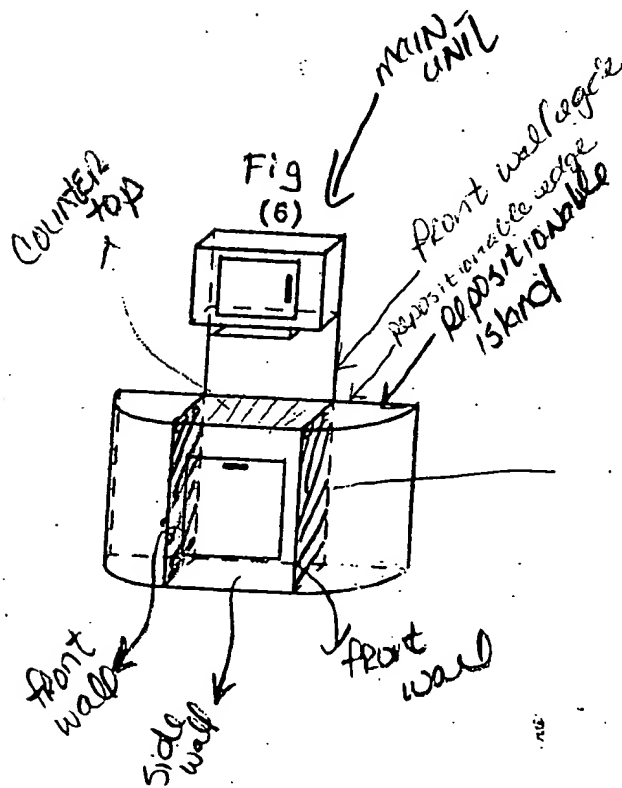 MAIN-
UNIT
Fig
(6)
COUNTER
top
front wall egde
repositionable edge
repositionable
island
front
wall
side
wall
front
wall